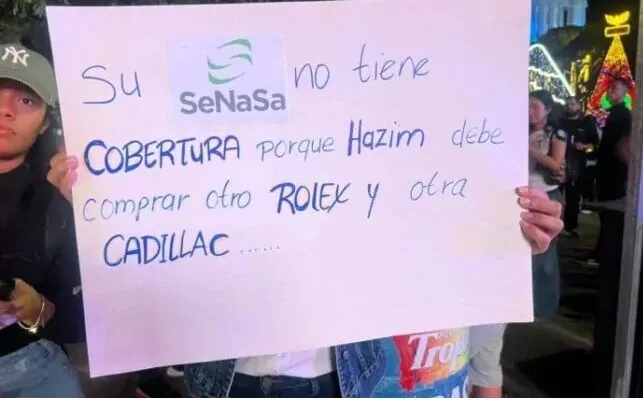 NY
Su SeNaSa no tiene
COBERTURA porque Hazim debe
comprar otro ROLEX y otra
CADILLAC ......
Trop